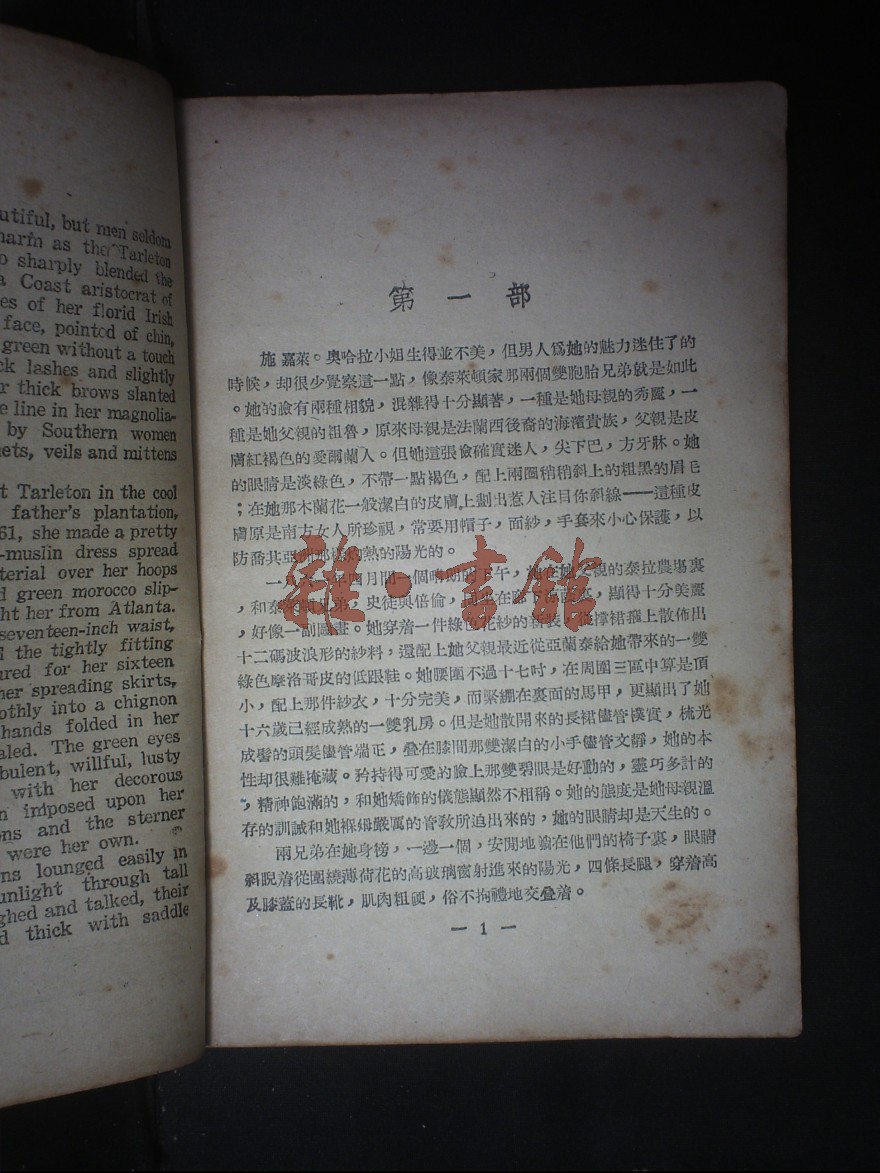 utiful, but men seldom
harm as the Tarleton
o sharply blended the
a Coast aristocrat of
es of her florid Irish
face, pointed of chin,
green without a touch
ck lashes and slightly
r thick brows slanted
e line in her magnolia-
by Southern women
nets, veils and mittens
t Tarleton in the cool
father's plantation,
61, she made a pretty
-muslin dress spread
terial over her hoops
d green morocco slip-
ght her from Atlanta.
seventeen-inch waist,
the tightly fitting
ured for her sixteen
her spreading skirts,
othly into a chignon
hands folded in her
aled. The green eyes
bulent, willful, lusty
with her decorous
n imposed upon her
ons and the sterner
were her own.
ns lounged easily in
unlight through tall
ghed and talked, their
d thick with saddle
第一部
施嘉萊。奧哈拉小姐生得並不美，但男人爲她的魅力迷住了的
時候，却很少覺察這一點，像泰萊頓家那兩個雙胞胎兄弟就是如此
。她的臉有兩種相貌，混雜得十分顯著，一種是她母親的秀麗，一
種是她父親的祖魯，原來母親是法蘭西後裔的海濱貴族，父親是皮
膚紅褐色的愛爾蘭人。但她這張臉確實迷人，尖下巴，方牙牀。她
的眼睛是淡綠色，不帶一點褐色，配上兩圈稍稍斜上的粗黑的眉毛
；在她那木蘭花一般潔白的皮膚上劃出惹人注目你斜線——這種皮
膚原是南方女人所珍視，常要用帽子，面紗，手套來小心保護，以
防喬其亞洲那樣灼熱的陽光的。
一八六一年四月間一個晴朗的下午，她在她父親的泰拉農場裏
，和泰萊頓兄弟，史徒與倍倫，同坐在廊下，顯得十分美麗
，好像一副圖畫。她穿着一件綠色花紗的新裝，從撐裙箍上散佈出
十二碼波浪形的紗料，還配上她父親最近從亞蘭泰給她帶來的一雙
綠色摩洛哥皮的低跟鞋。她腰圍不過十七吋，在周圍三區中算是頂
小，配上那件紗衣，十分完美，而緊綳在裏面的馬甲，更顯出了她
十六歲已經成熟的一雙乳房。但是她散開來的長裙儘管樸實，梳光
成髻的頭髮儘管端正，叠在膝間那雙潔白的小手儘管文靜，她的本
性却很難掩藏。矜持得可愛的臉上那雙碧眼是好動的，靈巧多計的
，精神飽滿的，和她矯飾的儀態顯然不相稱。她的態度是她母親溫
存的訓誡和她褓姆嚴厲的管教所迫出來的，她的眼睛却是天生的。
兩兄弟在她身傍，一邊一個，安閒地躺在他們的椅子裏，眼睛
斜睨着從圍繞薄荷花的高玻璃窗射進來的陽光，四條長腿，穿着高
及膝蓋的長靴，肌肉粗硬，俗不拘禮地交叠着。
— 1 —
雜·書館